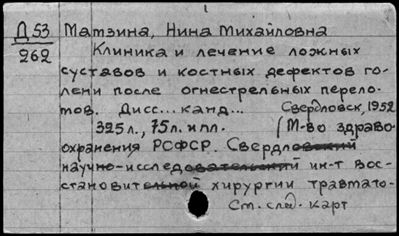 Д 53 Матзина, Нина Михайловна
262 Клиника и лечение ложных
суставов и костных дефектов го-
лени после огнестрельных перело-
мов. Дисс... канд... Свердловск, 1952
325 л., 75 л. илл. (М-во здраво-
охранения РСФСР. Свердловский
научно-исследовательский ин-т вос-
становительной хирургии травмато-
См. след. карт